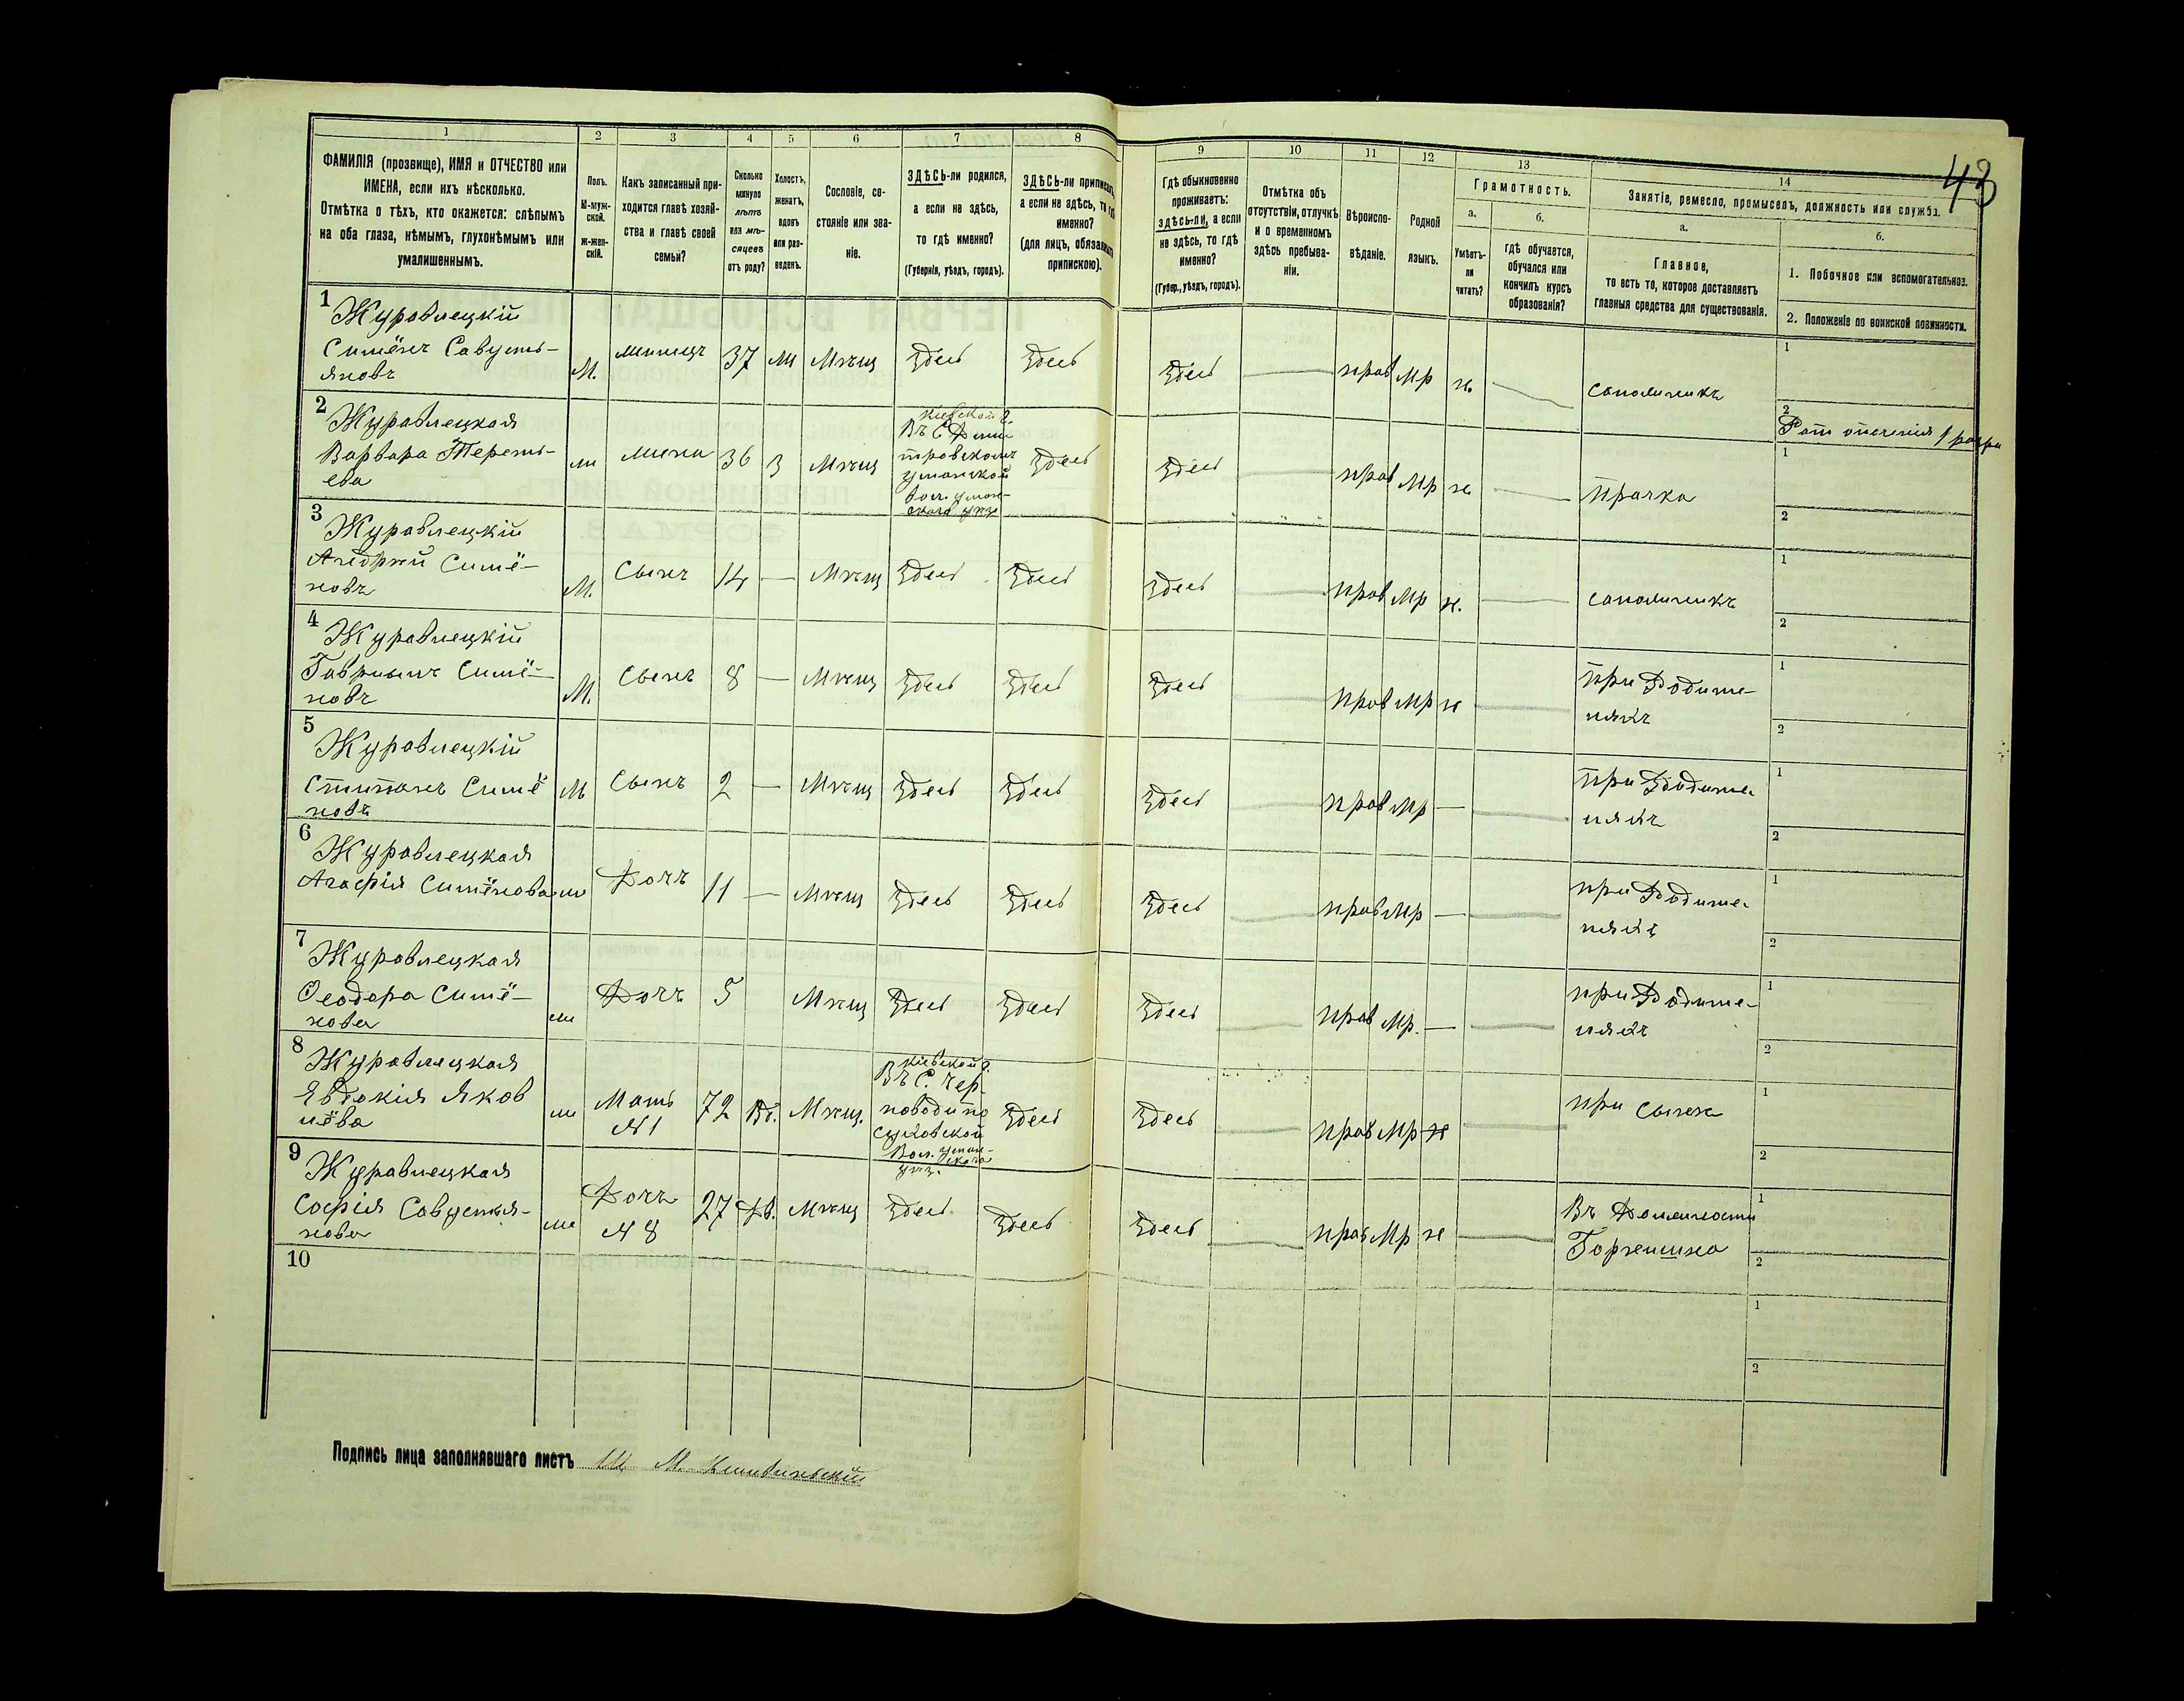 43
1 2 3 4 5 6 7 8 9 10 11 12 13 14
ФАМИЛІЯ (прозвище), ИМЯ и ОТЧЕСТВО или
ИМЕНА, если ихъ нѣсколько.
Отмѣтка о тѣхъ, кто окажется: слѣпымъ
на оба глаза, нѣмымъ, глухонѣмымъ или
умалишеннымъ.
Полъ.
М-муж-
ской.
ж-жен-
скій.
Какъ записанный при-
ходится главѣ хозяй-
ства и главѣ своей
семьи?
Сколько
минуло
лѣтъ
или мѣ-
сяцевъ
отъ роду?
Холостъ,
женатъ,
вдовъ
или раз-
веденъ.
Сословіе, со-
стояніе или зва-
ніе.
ЗДѢСЬ-ли родился,
а если не здѣсь,
то гдѣ именно?
(Губернія, уѣздъ, городъ).
ЗДѢСЬ-ли приписанъ,
а если не здѣсь, то гдѣ
именно?
(для лицъ, обязанныхъ
припискою).
Гдѣ обыкновенно
проживаетъ:
здѣсь-ли, а если
не здѣсь, то гдѣ
именно?
(Губер., уѣздъ, городъ).
Отмѣтка объ
отсутствіи, отлучкѣ
и о временномъ
здѣсь пребыва-
ніи.
Вѣроиспо-
вѣданіе.
Родной
языкъ.
Грамотность.
а.
Умѣетъ-
ли
читать?
б.
гдѣ обучается,
обучался или
кончилъ курсъ
образованія?
Занятіе, ремесло, промыселъ, должность или служба.
а.
Главное,
то есть то, которое доставляетъ
главныя средства для существованія.
б.
1. Побочное или вспомогательное.
2. Положеніе по воинской повинности.
1 Журавлецкій
Симёнъ
М. 37 Мѣщ Здесь Здесь Здесь прав мр н. сапожникъ 1
2
2 Журавлецкая
Варвара
36 з Мѣщ
Кіевской г.
Въ С
уманской
Здесь Здесь прав мр н. Прачка 1
2
3 Журавлецкій
Андрѣй Симё-
новъ
М. Сынъ 14 — Мѣщ Здесь Здесь Здесь прав мр н. сапожникъ 1
2
4 Журавлецкій
Гаврыилъ Симё-
новъ
М. Сынъ 8 — Мѣщ Здесь Здесь Здесь прав мр н при Родите-
ляхъ
1
2
5 Журавлецкій
Стипанъ Симё
новъ
М Сынъ 2 — Мѣщ Здесь Здесь Здесь прав мр — при Родите-
ляхъ
1
2
6 Журавлецкая
Агафія Симёнова
Дочъ 11 — Мѣщ Здесь Здесь Здесь прав мр — при Родите-
ляхъ
1
2
7 Журавлецкая
Ѳеодора Симё-
нова
Дочъ 5 Мѣщ Здесь Здесь Здесь прав мр. — при Родите-
ляхъ
1
2
8 Журавлецкая
Явдокія Яков
лёва
Мать
№ 1
72 Вд. Мѣщ.
Кіевской г.
Въ С. Чер-
новодыпо
Суховской
Вол. уман-
ского
уѣз.
Здесь Здесь прав мр н при Сынѣ 1
2
9 Журавлецкая
Софія
нова
Дочъ
№ 8
27 Дѣ. Мѣщ Здесь Здесь Здесь прав мр н Въ Должности
Горнешна
1
2
10
1
2
Подпись лица заполнявшаго листъ